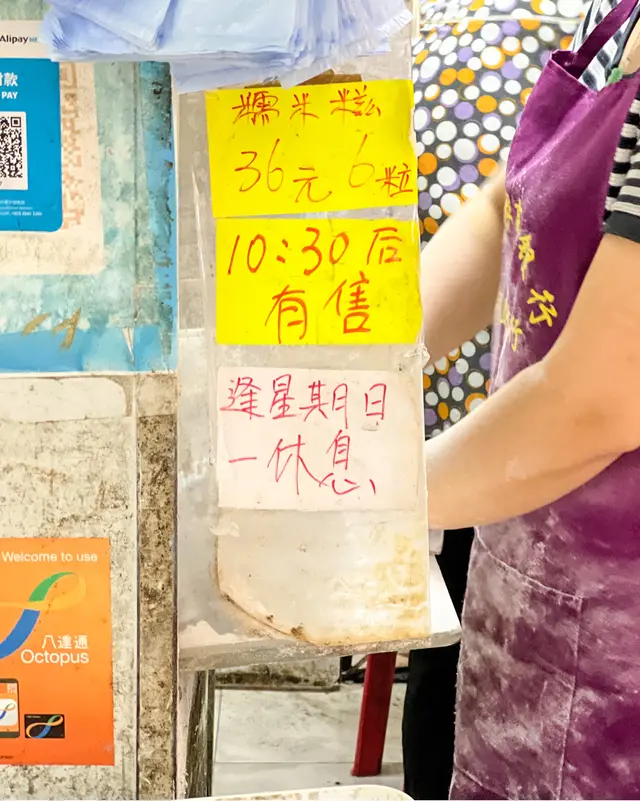 Alipay HK
付款
PAY
糯米糍
36元6粒
10:30后
有售
逢星期日
一休息
Welcome to use
八達通
Octopus
行